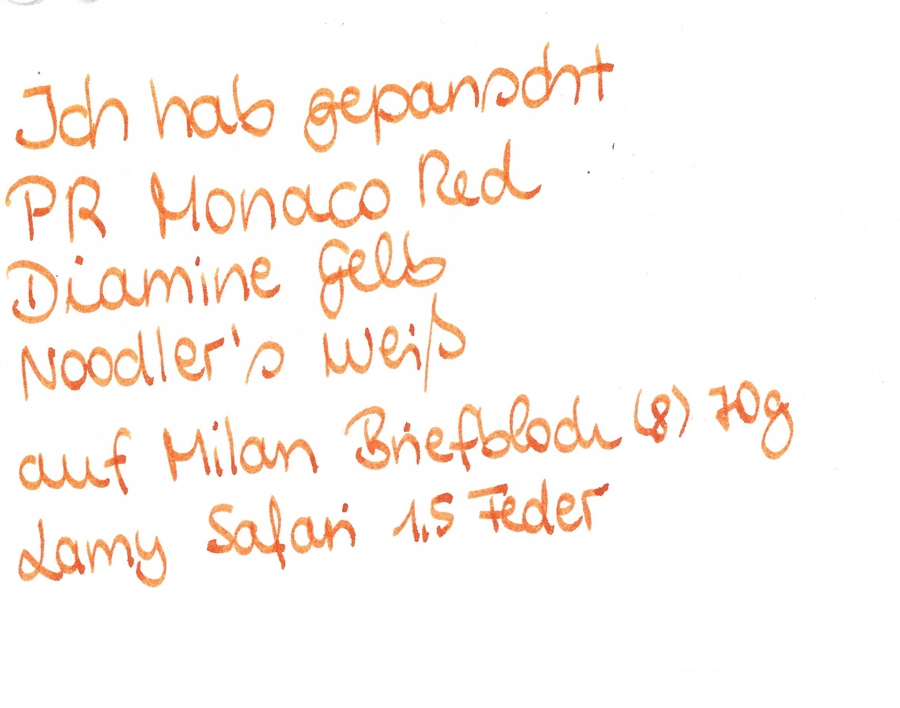 Ich hab gepanscht
PR Monaco Red
Diamine Gelb
Noodler's Weiß
auf Milan Briefblock (8) 70g
Lamy Safari 1,5 Feder